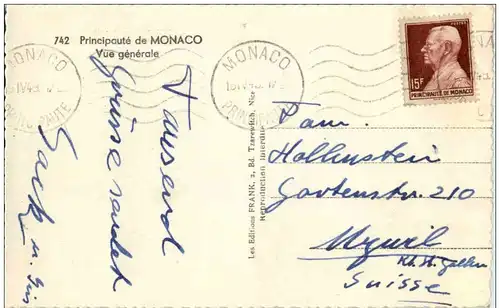 742 Principauté de MONACO
Vue générale
MONACO
MONACO
15F
POSTES
PRINCIPAUTÉ DE MONACO
Tausend
Grüsse sendet
Jack u.
Les Editions FRANK, 2, Bd. Tzarewitch, Nice
Reproduction interdite
Fam.
Hollenstein
Gartenstr. 210
Uzwil
Kt. St. Gallen
Suisse